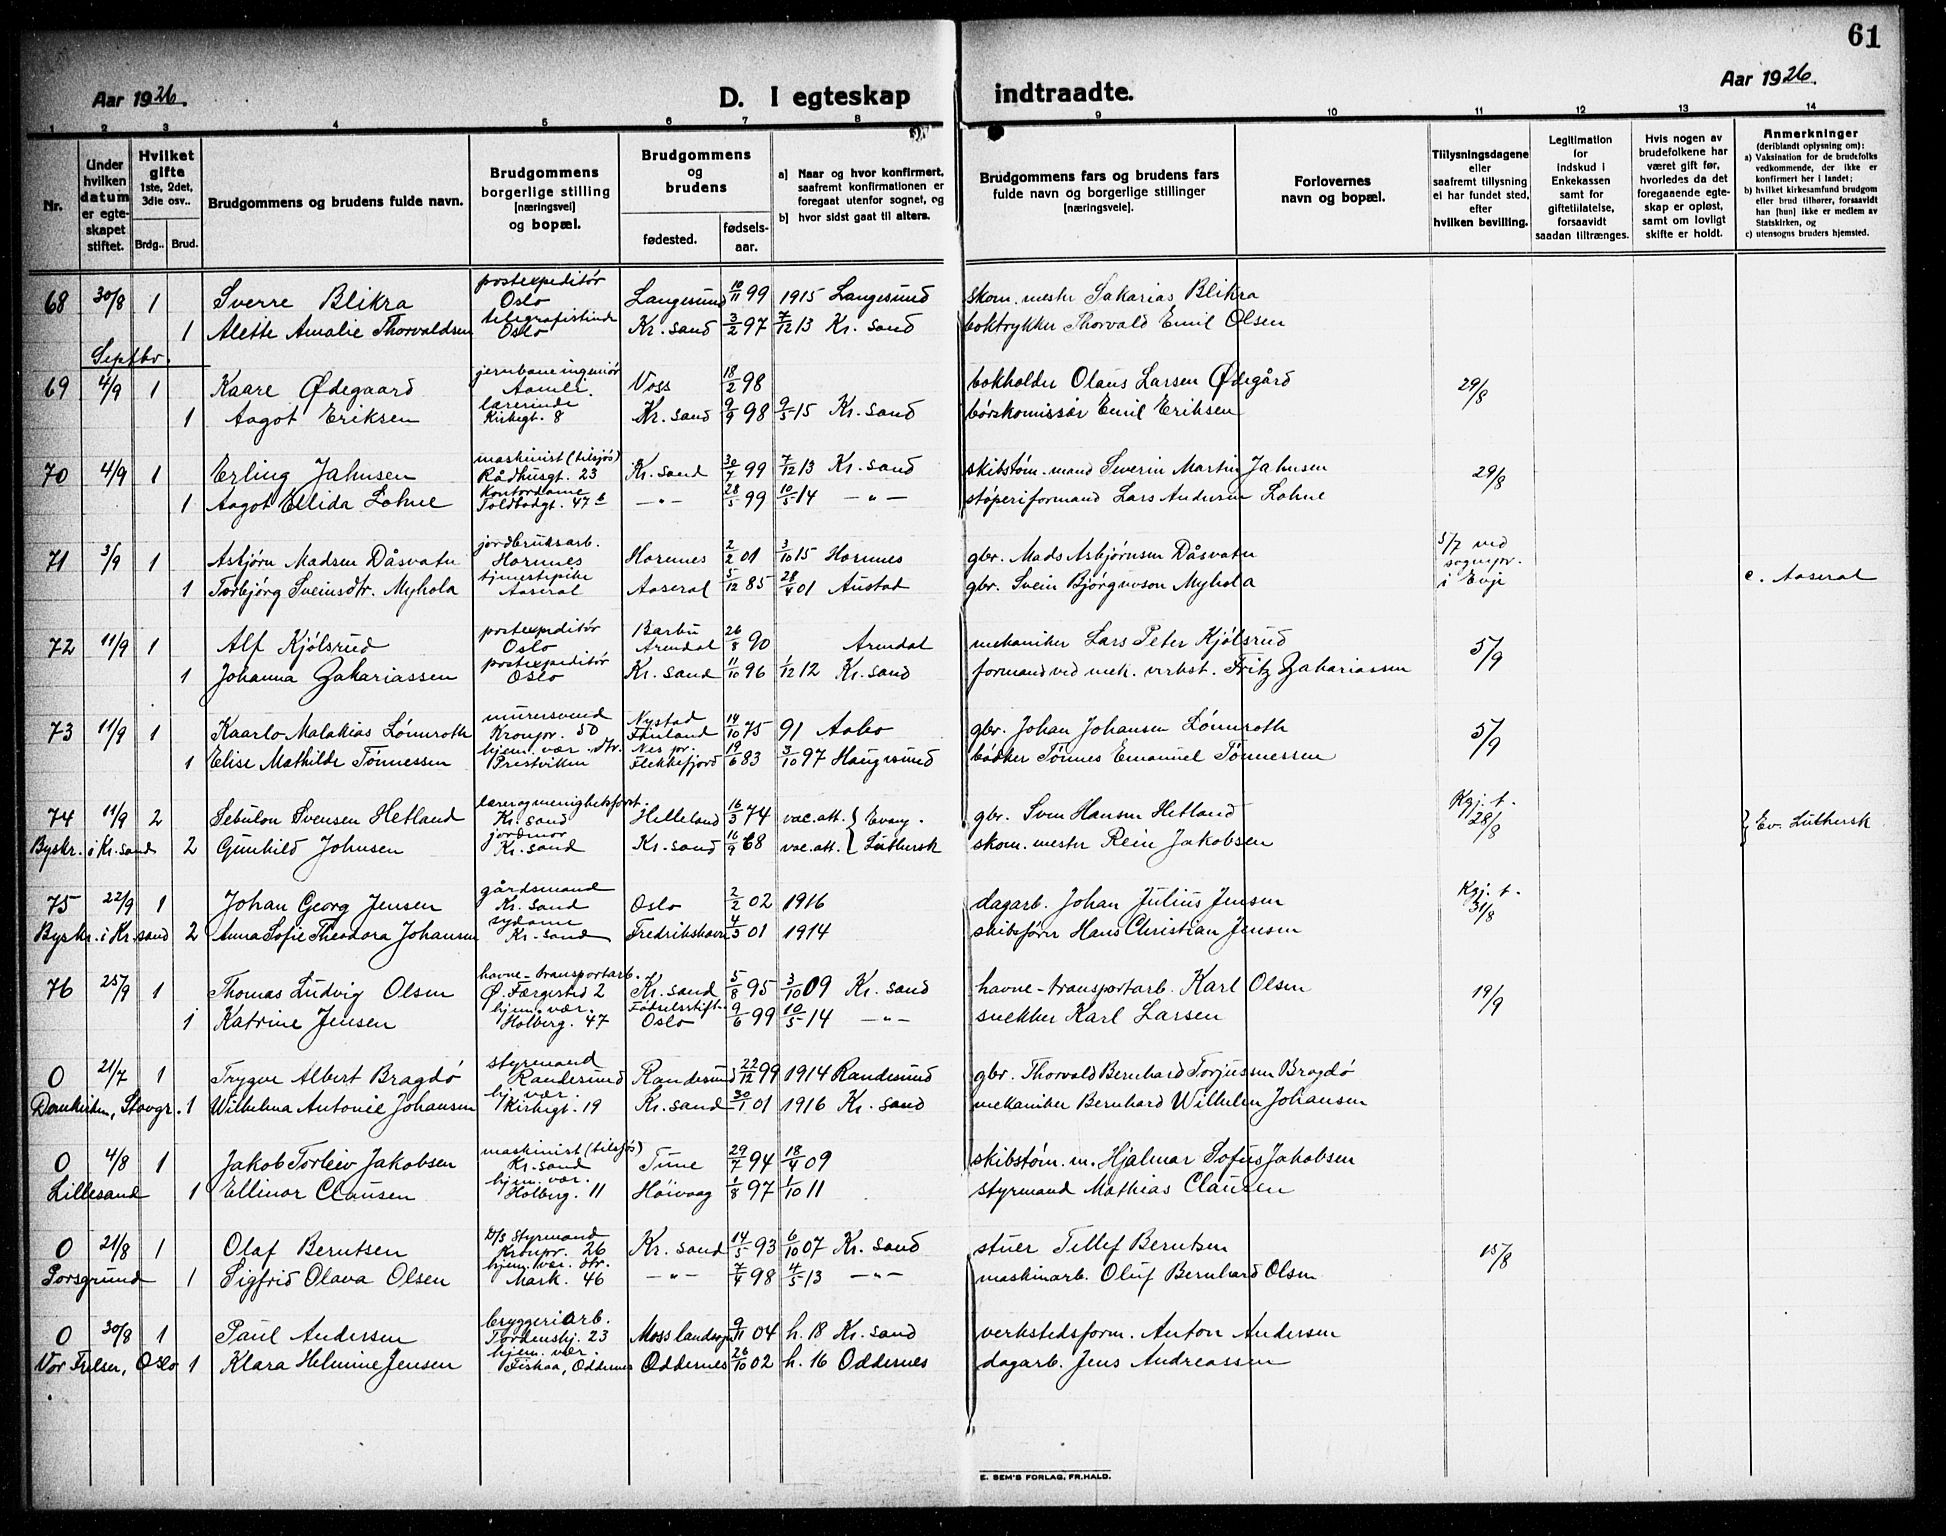 61
Aar 1926.
D. I egteskap indtraadte.
Aar 1926.
1 2 3 4 5 6 7 8 9 10 11 12 13 14
Nr.
Under hvilken datum er egteskapet stiftet.
Hvilket gifte 1ste, 2det, 3die osv..
Brdg.. Brud.
Brudgommens og brudens fulde navn.
Brudgommens borgerlige stilling [næringsvei] og bopæl.
Brudgommens og brudens
fødested. fødsels-aar.
a) Naar og hvor konfirmert, saafremt konfirmationen er foregaat utenfor sognet, og
b) hvor sidst gaat til alters.
Brudgommens fars og brudens fars fulde navn og borgerlige stillinger [næringsveie].
Forlovernes navn og bopæl.
Tillysningsdagene eller saafremt tillysning ei har fundet sted, efter hvilken bevilling.
Legitimation for indskud i Enkekassen samt for giftetilatelse, forsaavidt saadan tiltrænges.
Hvis nogen av brudefolkene har været gift før, hvorledes da det foregaaende egteskap er opløst, samt om lovligt skifte er holdt.
Anmerkninger (deriblandt oplysning om):
a) Vaksination for de brudefolks vedkommende, der ikke er konfirmert her i landet;
b) hvilket kirkesamfund brudgom eller brud tilhører, forsaavidt han [hun] ikke er medlem av Statskirken, og
c) utensogns bruders hjemsted.
68 30/8 1 Sverre Blikra postexpeditør Oslo Langesund 10/11 99 1915 Langesund skom.mester Sakarias Blikra
1 Alette Amalie Thorvaldsen telegrafistinde Oslo Kr.sand 3/2 97 7/12 13 Kr. sand boktrykker Thorvald Emil Olsen
Septbr.
69 4/9 1 Kaare Ødegaard jernbaneingeniør Aamli. Voss 18/2 98 bokholder Olaus Larsen Ødegård 29/8
1 Aagot Eriksen lærerinde Kirkegt. 8 Kr. sand 9/9 98 9/5 15 Kr. sand børskomissær Emil Eriksen
70 4/9 1 Erling Jahnsen maskinist (tilsjøs) Rådhusgt. 23 Kr. sand 30/7 99 7/12 13 Kr. sand skibstøm.mand Severin Martin Jahnsen 29/8
1 Aagot Ellida Lohne Kontordame Toldbodgt. 47 — " — 28/5 99 10/5 14 — " — støperiformand Lars Andersen Lohne
71 3/9 1 Asbjørn Madsen Dåsvatn jordbruksarb. Hornnes Hornnes 2/2 01 3/10 15 Hornnes gbr. Mads Asbjørnsen Dåsvatn 5/7 ved sognepr. i Evje
1 Torbjørg Sveinsdtr. Myhola tjenestepike Aaseral Aaseral 5/12 85 28/4 01 Austad gbr. Svein Bjørguvson Myhola c. Aaseral
72 11/9 1 Alf Kjølsrud postexpeditør Oslo Barbu Arendal 26/8 90 Arendal mekaniker Lars Peter Kjølsrud 5/9
1 Johanna Zakariassen postexpeditør Oslo Kr. sand 11/10 96 1/12 12 Kr. sand formand ved mek. verkst. Fritz Zakariassen
73 11/9 1 Kaarlo Malakias Lønnroth murersvend Kronpr. 50 Nystad Finland 14/10 75 91 Aabo gbr. Johan Johansen Lønnroth 5/9
1 Elise Mathilde Tønnessen hjem. vær. str. Prestviken Nes pr. Flekkefjord 19/6 83 3/10 97 Haugesund bødker Tønnes Emanuel Tønnessen
74 11/9 2 Sebulon Svensen Hetland lærer og menighetsforst. Kr. sand Helleland 16/3 74 vac.att. Evang. gbr. Sven Hansen Hetland Kgj. t. 28/8 Ev. Luthersk
Byskr. i Kr. sand 2 Gunhild Johnsen jordmor Kr. sand Kr. sand 16/9 68 vac.att. Luthersk skom. mester Rein Jakobsen
75 22/9 1 Johan Georg Jensen gårdsmand Kr. sand Oslo 2/2 02 1916 dagarb. Johan Julius Jensen Kgj. t. 31/8
Byskr. i Kr. sand 2 Anna Sofie Theodora Johansen sydame Kr. sand Fredrikshavn 4/3 01 1914 skibsfører Hans Christian Jensen
76 25/9 1 Thomas Ludvig Olsen havne-transportarb. Ø. Færgested 2 Kr. sand 5/8 95 3/10 09 Kr. sand havne-transportarb. Karl Olsen 19/9
1 Katrine Jensen hjem. vær. Holberg. 47 Fødselsstift. Oslo 9/6 99 10/5 14 — " — snekker Karl Larsen
0 21/7 1 Trygve Albert Bragdø styrmand Randesund Randesund 22/12 99 1914 Randesund gbr. Thorvald Bernhard Torjussen Bragdø
Domkirken, Stavgr. 1 Wilhelma Antonie Johansen hjem. vær. Kirkegt. 19 Kr. sand 30/1 01 1916 Kr. sand mekaniker Bernhard Wilhelm Johansen
0 4/8 1 Jakob Torleiv Jakobsen maskinist (tilsjøs) Kr. sand Tune 29/7 94 18/4 09 skibstøm. m. Hjalmar Sofus Jakobsen
Lillesand 1 Ellinor Clausen hjem. vær. Holberg. 11 Høivaag 1/8 97 1/10 11 styrmand Mathias Clausen
0 21/8 1 Olaf Berntsen D/S Styrmand Kronpr. 26 Kr. sand 14/5 93 6/10 07 Kr. sand stuer Tellef Berntsen 15/8
Porsgrund 1 Sigfrid Olava Olsen hjem. vær. str. Mark. 46 — " — 7/4 98 4/5 13 — " — maskinarb. Oluf Bernhard Olsen
0 30/8 1 Paul Andersen bryggeriarb. Tordenskj. 23 Moss landsogn 9/11 04 h. 18 Kr. sand verkstedsform. Anton Andersen
Vor Frelser, Oslo 1 Klara Helmine Jensen hjem. vær. Fiskaa, Oddernes Oddernes 26/10 02 h. 16 Oddernes dagarb. Jens Andreassen
E. SEM'S FORLAG, FR.HALD.